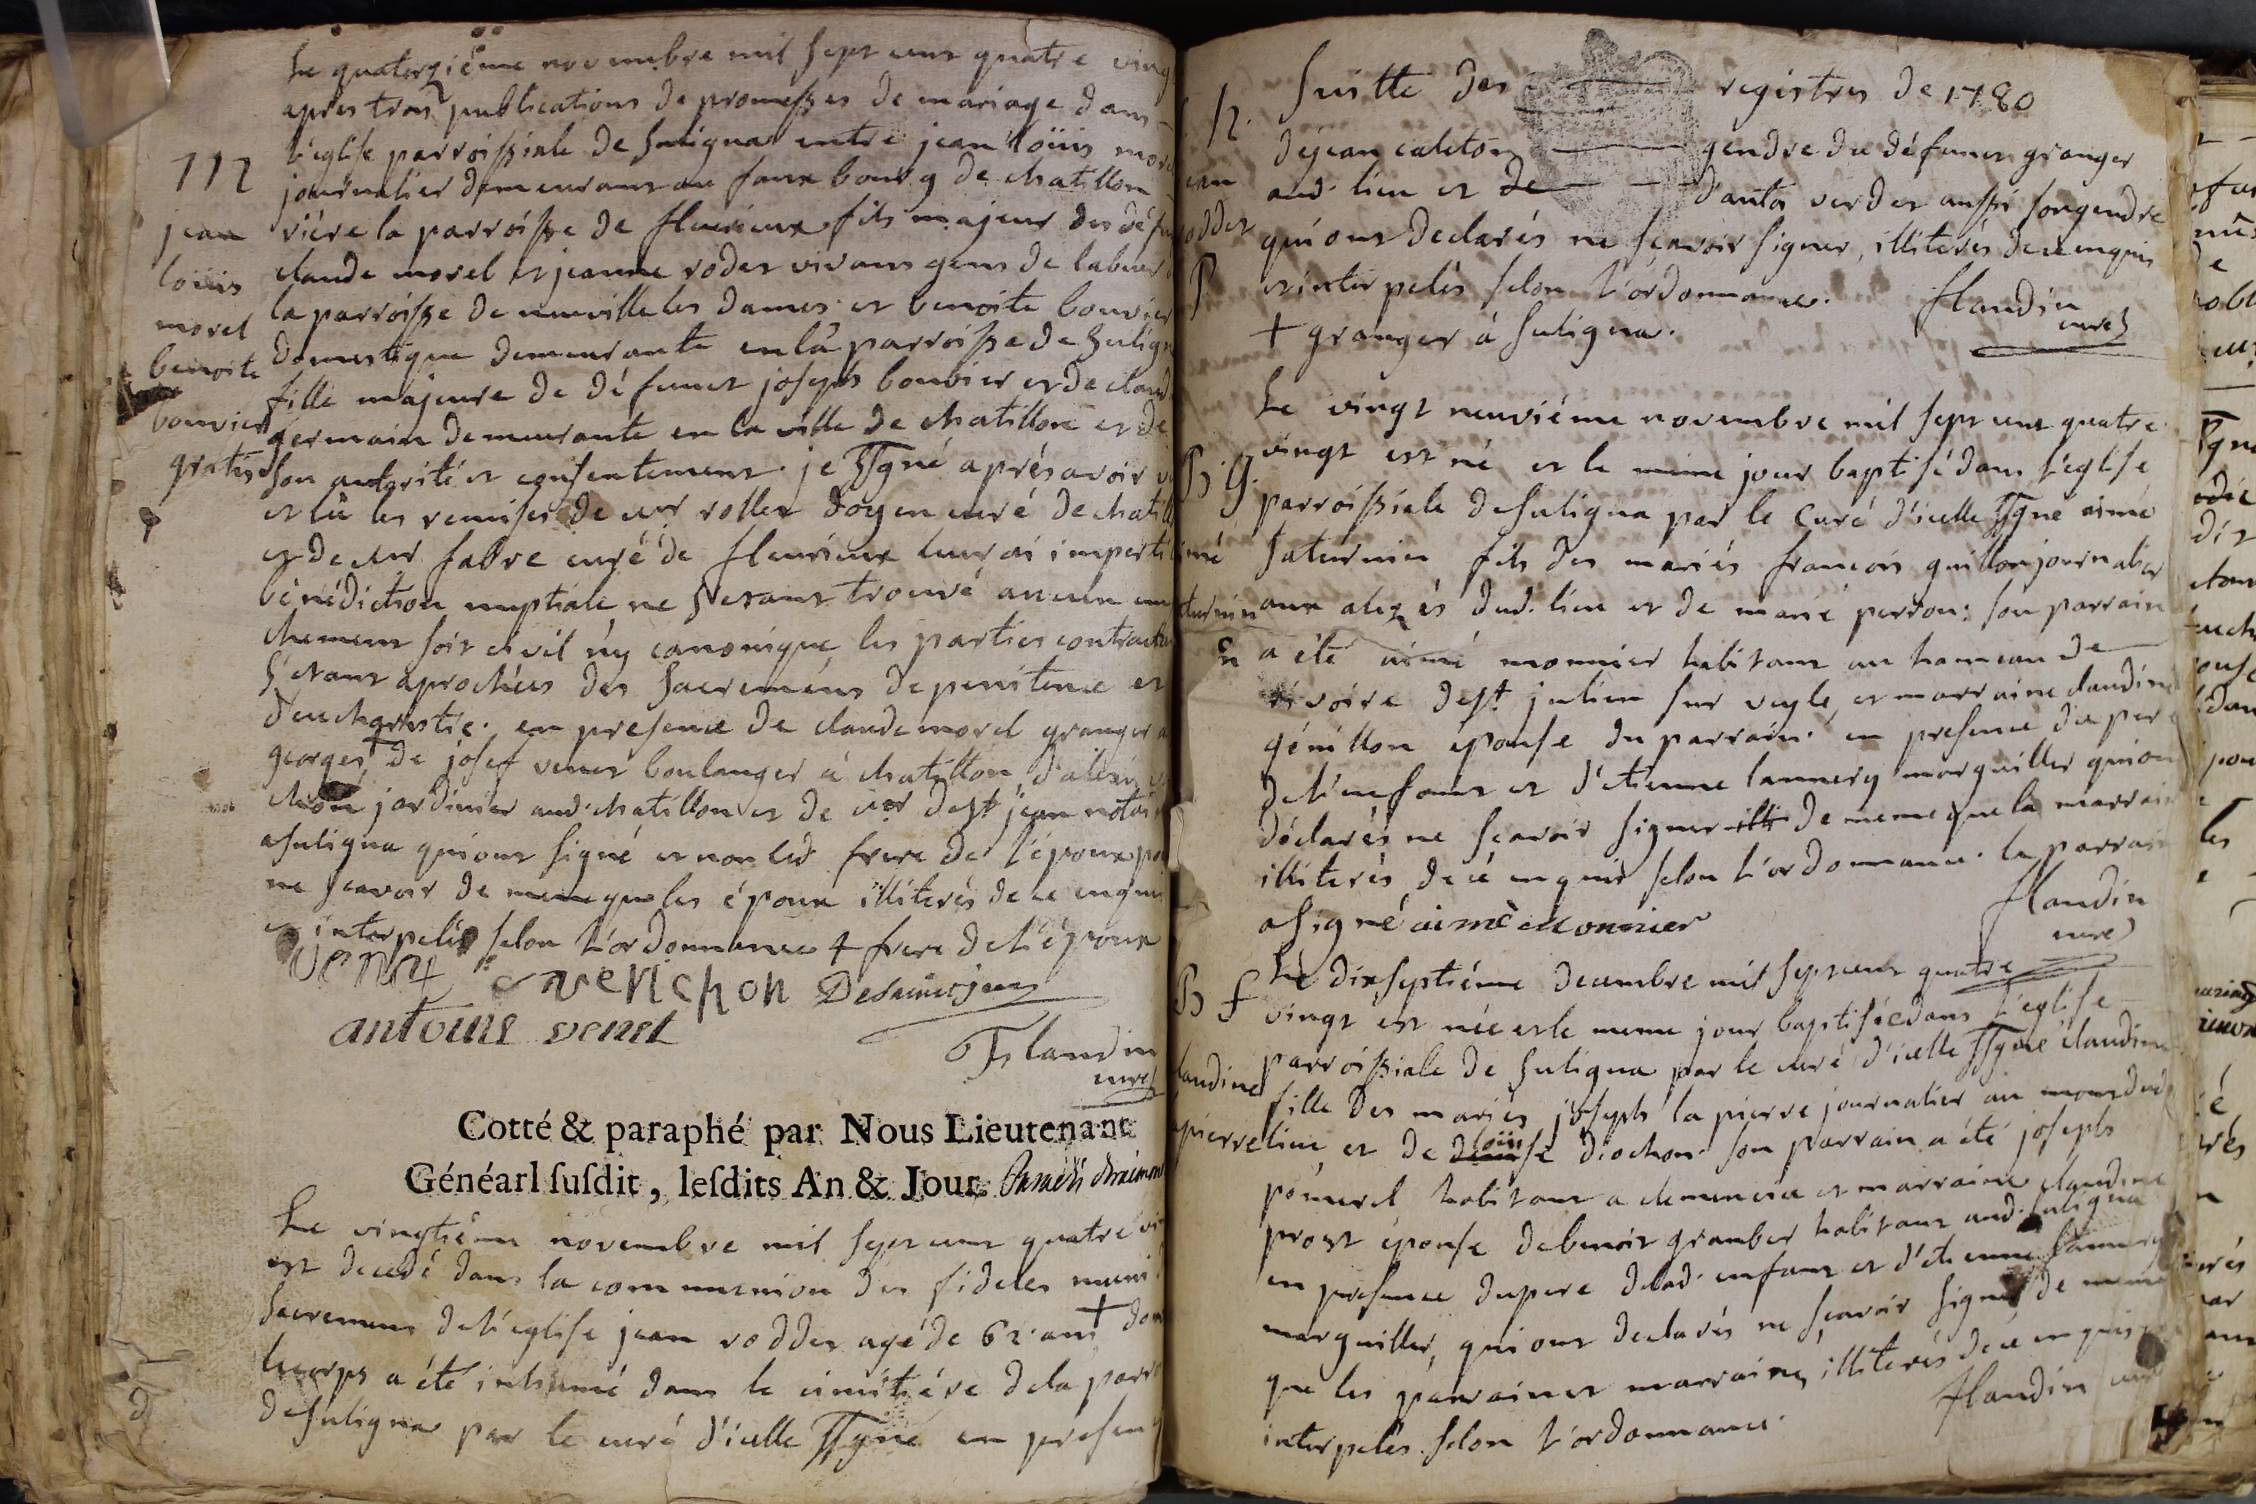 Le quatorzième novembre mil sept cent quatre ving
apres trois publications de promesses de mariage dans
l'eglise parroissiale de Suligna entre jean loüis more
journalier demeurant au faux bourg de chatillon
riére la parroisse de fleurieux fils majeur des défu
claude morel et jeanne rodet vivans gens de labeur
la parroisse de neuville les dames et benoite bouvier
domestique demeurante en la parroisse de Sulign
fille majeure de défunct joseph bouvier et de claud
germain demeurante en la ville de chatillon et de
son autorité et consentement je ssigné aprés avoir v
et lû les remises de mr rollet doyen curé de chatill
et de mr fabre curé de fleurieux leur ai imparti
bénédiction nuptiale ne s'etant trouvé aucun em
chement soit civil ny canonique, les parties contracta
s'etant aprochées des sacreméns de penitence et
d'eucharistie. en presence de claude morel granger a
georges + de josef venet boulanger á chatillon d'alexis v
chon jardinier aud. chatillon et de mr de st jean notair
a suligna qui ont signé et non led. frere de l'époux po
ne scavoir de meme que les époux illiterés de ce enqui
et interpelés selon l'ordonnance + frere de l'époux
112
jean
loüis
morel
benoite
bouvier
gratis
venet a verichon Desaintjean
antoine venet
Flandin
curé
Cotté & paraphé par Nous Lieutenant
Généarl ſuſdit, leſdits An & Jour.
Le vingtiéme novembre mil sept cent quatre vin
est decedé dans la communion des fideles muni d
sacremens de l'eglise jean roddet agé de 62. ans + don
le corps a été inhumé dans le cimitiére de la parro
de suligna par le curé d'icelle ssigné en presenc
Suitte des registres de 1780
de jean caleton gendre du défunct granger
aud. lieu et de d'anto verdet aussi son gendre
qui ont declarés ne sçavoir signer, illiterés de ce enquis
et interpelés selon l'ordonnance. flandin
+ granger á suligna. curé
ean
oddet
Le vingt neuviéme novembre mil sept cent quatre
vingt est né et le meme jour baptisé dans l'eglise
parroissiale de suligna par le curé d'icelle ssigné aimé
saturnin fils des mariés francois guillon journalier
aux alezés dud. lieu et de marie perron: son parrain
a été aimé monnier habitant au hameau de
rivoire de st julien sur veyle, et marraine claudine
génillon épouse du parrain. en presence du pere
de l'enfant et d'etienne lannery marguiller qui on
déclarés ne scavoir signer illi de meme que la marrain
illiterés de cé enquis selon l'ordonnance. le parrain
a signé aimé monnier flandin
curé
B. G.
imé
turnin
Le dixseptiéme decembre mil sept cent quatre
vingt est née et le meme jour baptisée dans l'eglise
parroissiale de suligna par le curé d'icelle ssigné claudine
fille des mariés joseph la pierre journalier au mont dud.
lieu et de loüise diochon. son parrain a été joseph
pomerel habitant a clemencia et marraine claudine
prost épouse de benoit grambert habitant aud. suligna
en presence du pere de lad. enfant et d'etienne lannery
marguiller, qui ont declarés ne sçavoir signer de meme
que les parrain et marraine, illiterés de cé enquis
interpelés selon l'ordonnance. flandin curé
B f
laudine
pierre